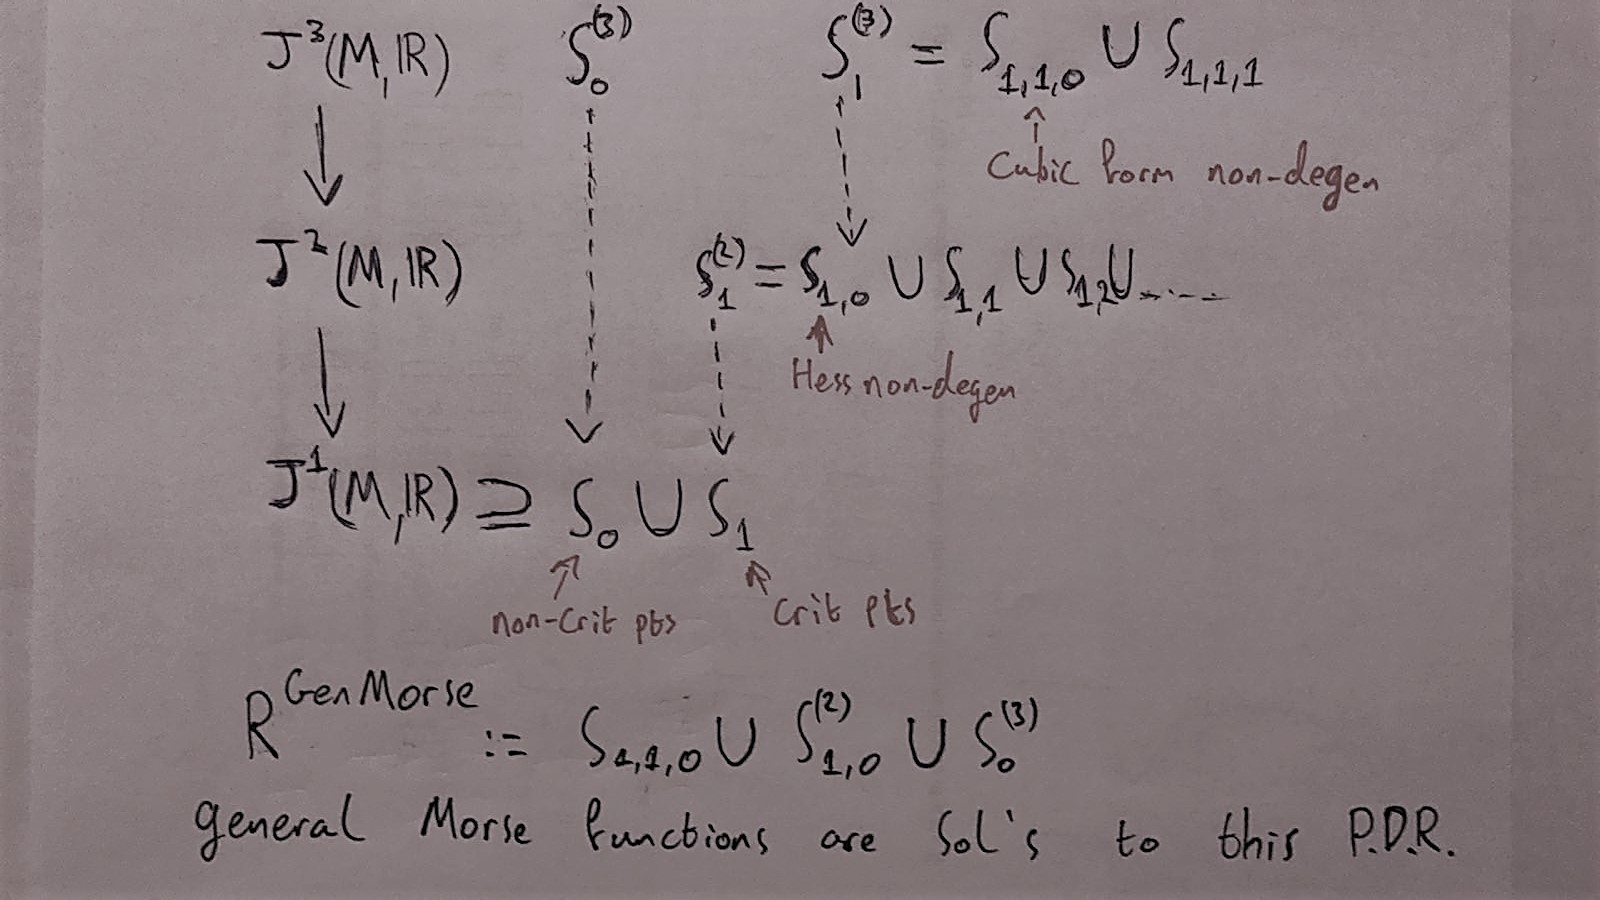 J³(M,ℝ) S₀⁽³⁾ S₁⁽³⁾ = S₁,₁,₀ ∪ S₁,₁,₁
Cubic form non-degen
J²(M,ℝ) S₁⁽²⁾ = S₁,₀ ∪ S₁,₁ ∪ S₁,₂ ∪ .....
Hess non-degen
J¹(M,ℝ) ⊇ S₀ ∪ S₁
non-crit pts crit pts
R^GenMorse := S₁,₁,₀ ∪ S₁,₀⁽²⁾ ∪ S₀⁽³⁾
general Morse functions are sol's to this P.D.R.